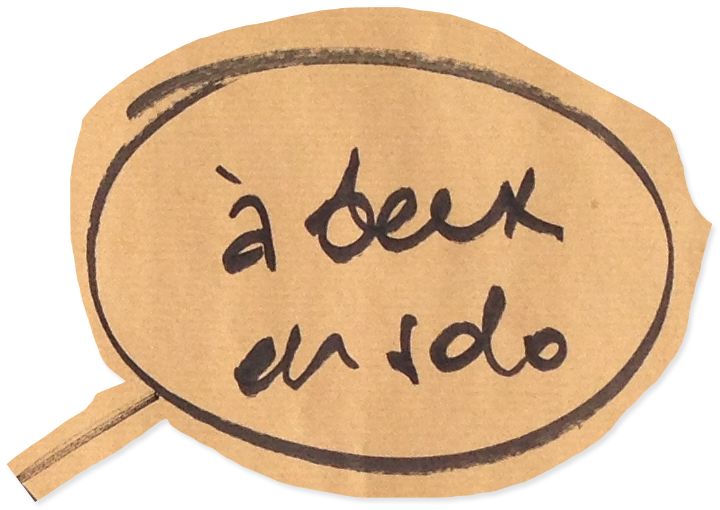 à deux
en solo